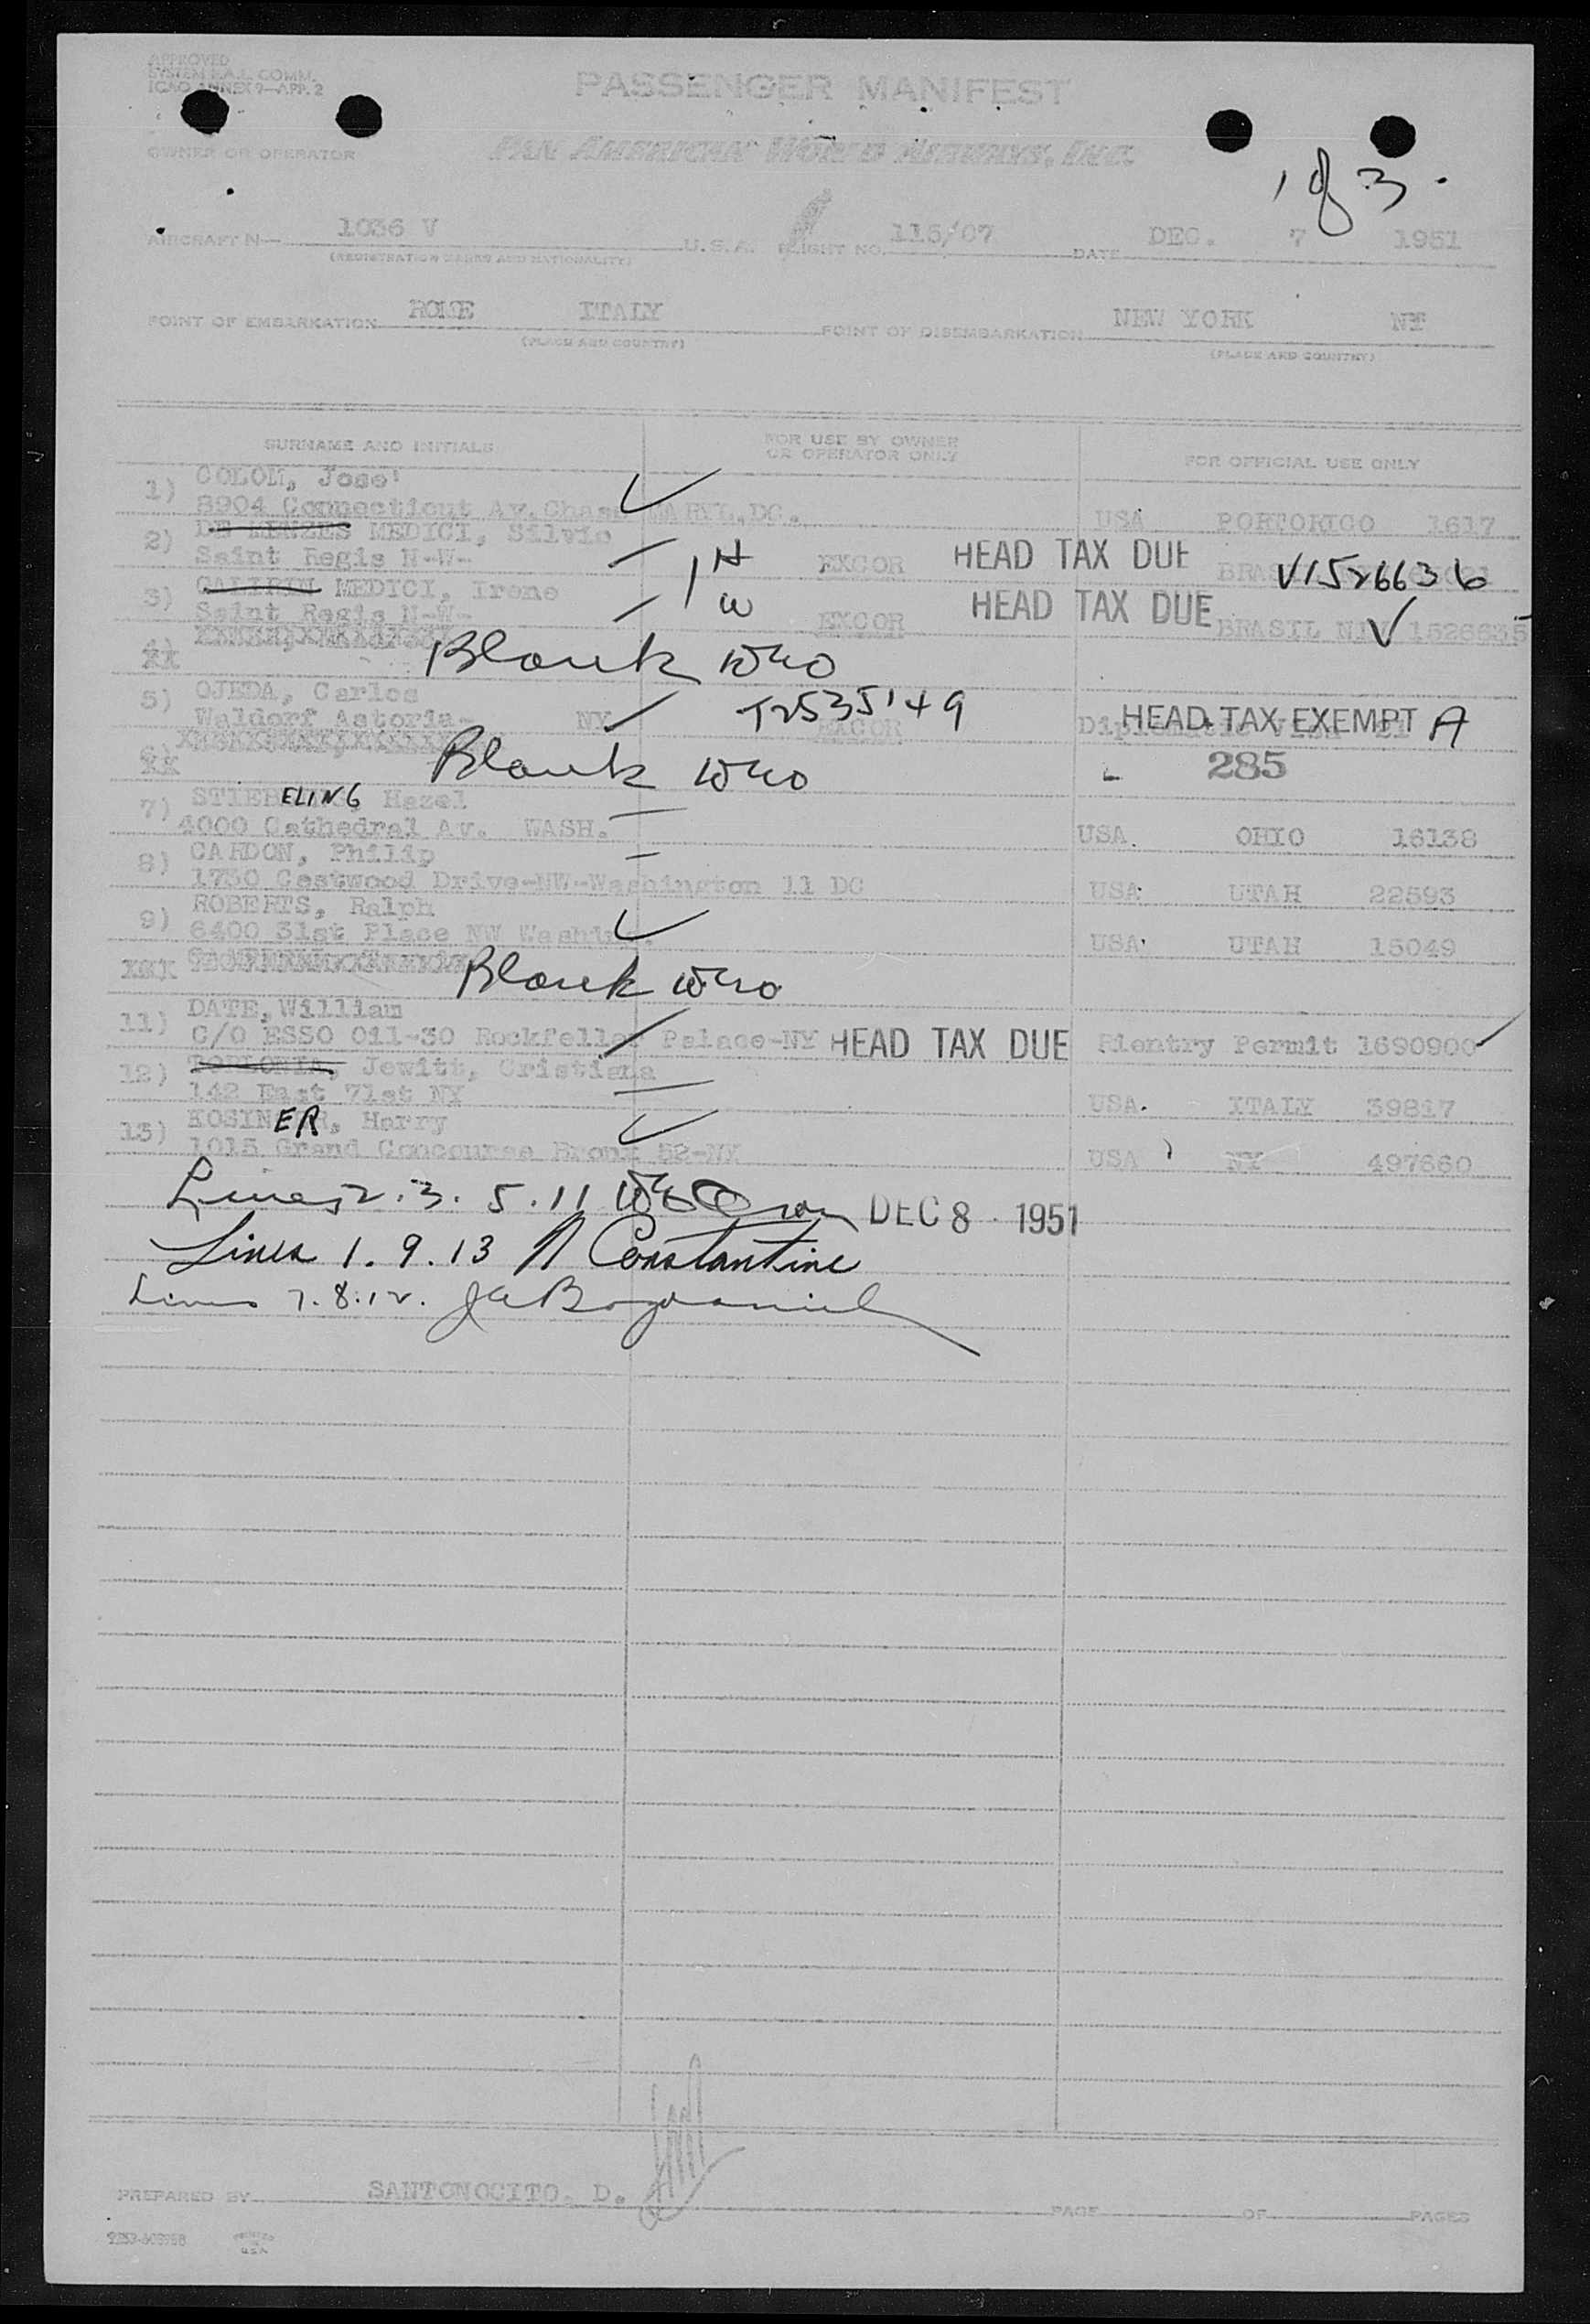 APPROVED
SYSTEM F.A.L. COMM.
ICAO ANNEX 9-APP. 2
PASSENGER MANIFEST
OWNER OR OPERATOR
PAN AMERICAN WORLD AIRWAYS, INC.
1 of 3.
AIRCRAFT N— 1036 V U.S.A. FLIGHT NO. 115/07 DATE DEC. 7 1951
(REGISTRATION MARKS AND NATIONALITY)
POINT OF EMBARKATION ROME ITALY POINT OF DISEMBARKATION NEW YORK NY
(PLACE AND COUNTRY) (PLACE AND COUNTRY)
SURNAME AND INITIALS FOR USE BY OWNER OR OPERATOR ONLY FOR OFFICIAL USE ONLY
1) COLOM, Jose'
8904 Connecticut Av. Chase MARYL. DC. USA PORTORICO 1617
2) DE MENZES MEDICI, Silvio
Saint Regis N-W- 1 H EXCOR HEAD TAX DUE V1526636
3) MEDICI, Irene
Saint Regis N-W- W EXCOR HEAD TAX DUE BRASIL 1526635
4)
Blank
5) OJEDA, Carlos
Waldorf Astoria- NY T2535149 EXCOR HEAD TAX EXEMPT A
6)
Blank 285
7) STIEBELING, Hazel
4000 Cathedral Av. WASH. USA. OHIO 16138
8) CARDON, Philip
1730 Castwood Drive-NW-Washington 11 DC USA UTAH 22593
9) ROBERTS, Ralph
6400 31st Place NW Washing. USA UTAH 15049
Blank
11) DATE, William
C/O ESSO Oil-30 Rockfeller Palace-NY HEAD TAX DUE Rientry Permit 1690900
12) Jewitt, Cristiana
142 East 71st NY USA. ITALY 39817
13) KOSINER, Harry
1015 Grand Concourse Bronx 52-NY USA NY 497660
Lines 2. 3. 5. 11 DEC 8 1951
Lines 1. 9. 13 N Constantine
Lines 7. 8. 12.
PREPARED BY SANTONOCITO. D. PAGE OF PAGES
PRINTED
U.S.A.